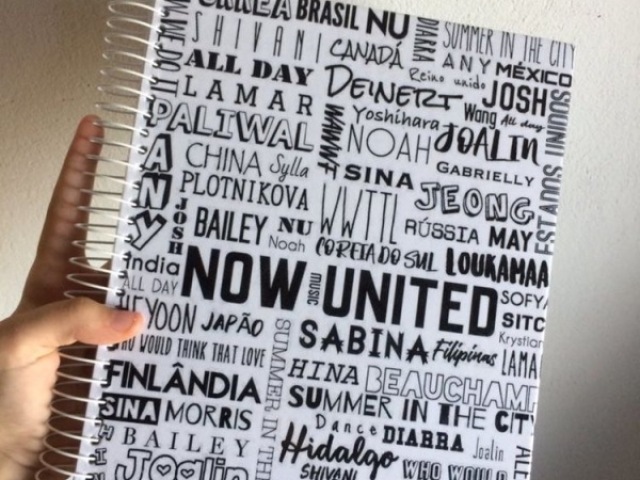 COREIA BRASIL NU
SHIVANI CANADÁ DIARRA SUMMER IN THE CITY
ANY MÉXICO
ALL DAY Reino unido
LAMAR DEINERT JOSH
Wang All day
PALIWAL WWWF Yoshihara
NOAH JOALIN
CHINA Sylla SINA GABRIELLY
ANY
PLOTNIKOVA WWTTL JEONG
JOSH
BAILEY NU RÚSSIA MAY
Noah COREIA DO SUL LOUKAMAA
India
NOW UNITED
music
ALL DAY SOFYA
HEYOON JAPÃO SITC
SABINA Filipinas Krystian
WHO WOULD THINK THAT LOVE LAMA
SUMMER IN THE
HINA BEAUCHAMP
FINLÂNDIA
SUMMER IN THE CITY
SINA MORRIS
Dance DIARRA Joalin
BAILEY
Hidalgo
Joalin SHIVANI WHO WOULD